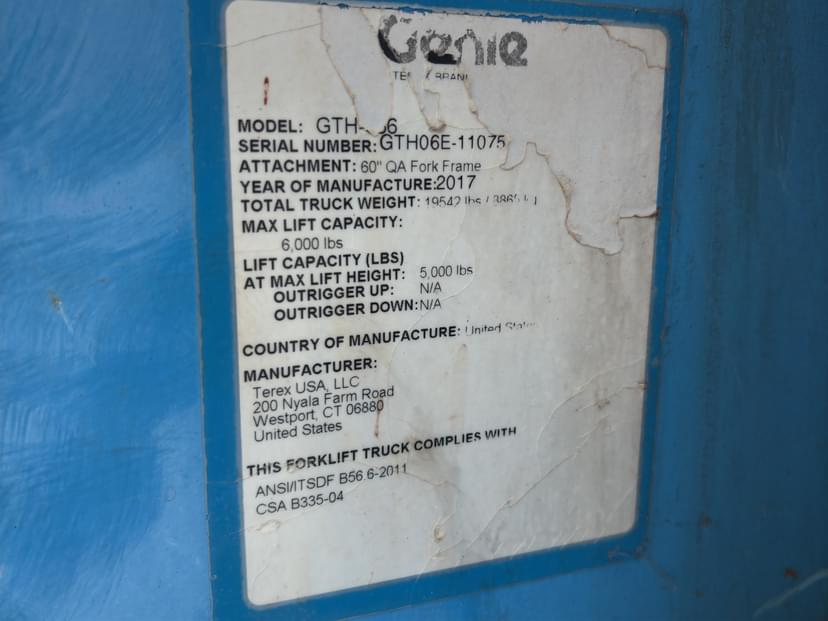 Genie
MODEL: GTH-
SERIAL NUMBER: GTH06E-11075
ATTACHMENT: 60" QA Fork Frame
YEAR OF MANUFACTURE:2017
TOTAL TRUCK WEIGHT: 19542 lbs /
MAX LIFT CAPACITY:
6,000 lbs
LIFT CAPACITY (LBS)
AT MAX LIFT HEIGHT: 5,000 lbs
OUTRIGGER UP: N/A
OUTRIGGER DOWN:N/A
COUNTRY OF MANUFACTURE: United States
MANUFACTURER:
Terex USA, LLC
200 Nyala Farm Road
Westport, CT 06880
United States
THIS FORKLIFT TRUCK COMPLIES WITH
ANSI/ITSDF B56.6-2011
CSA B335-04